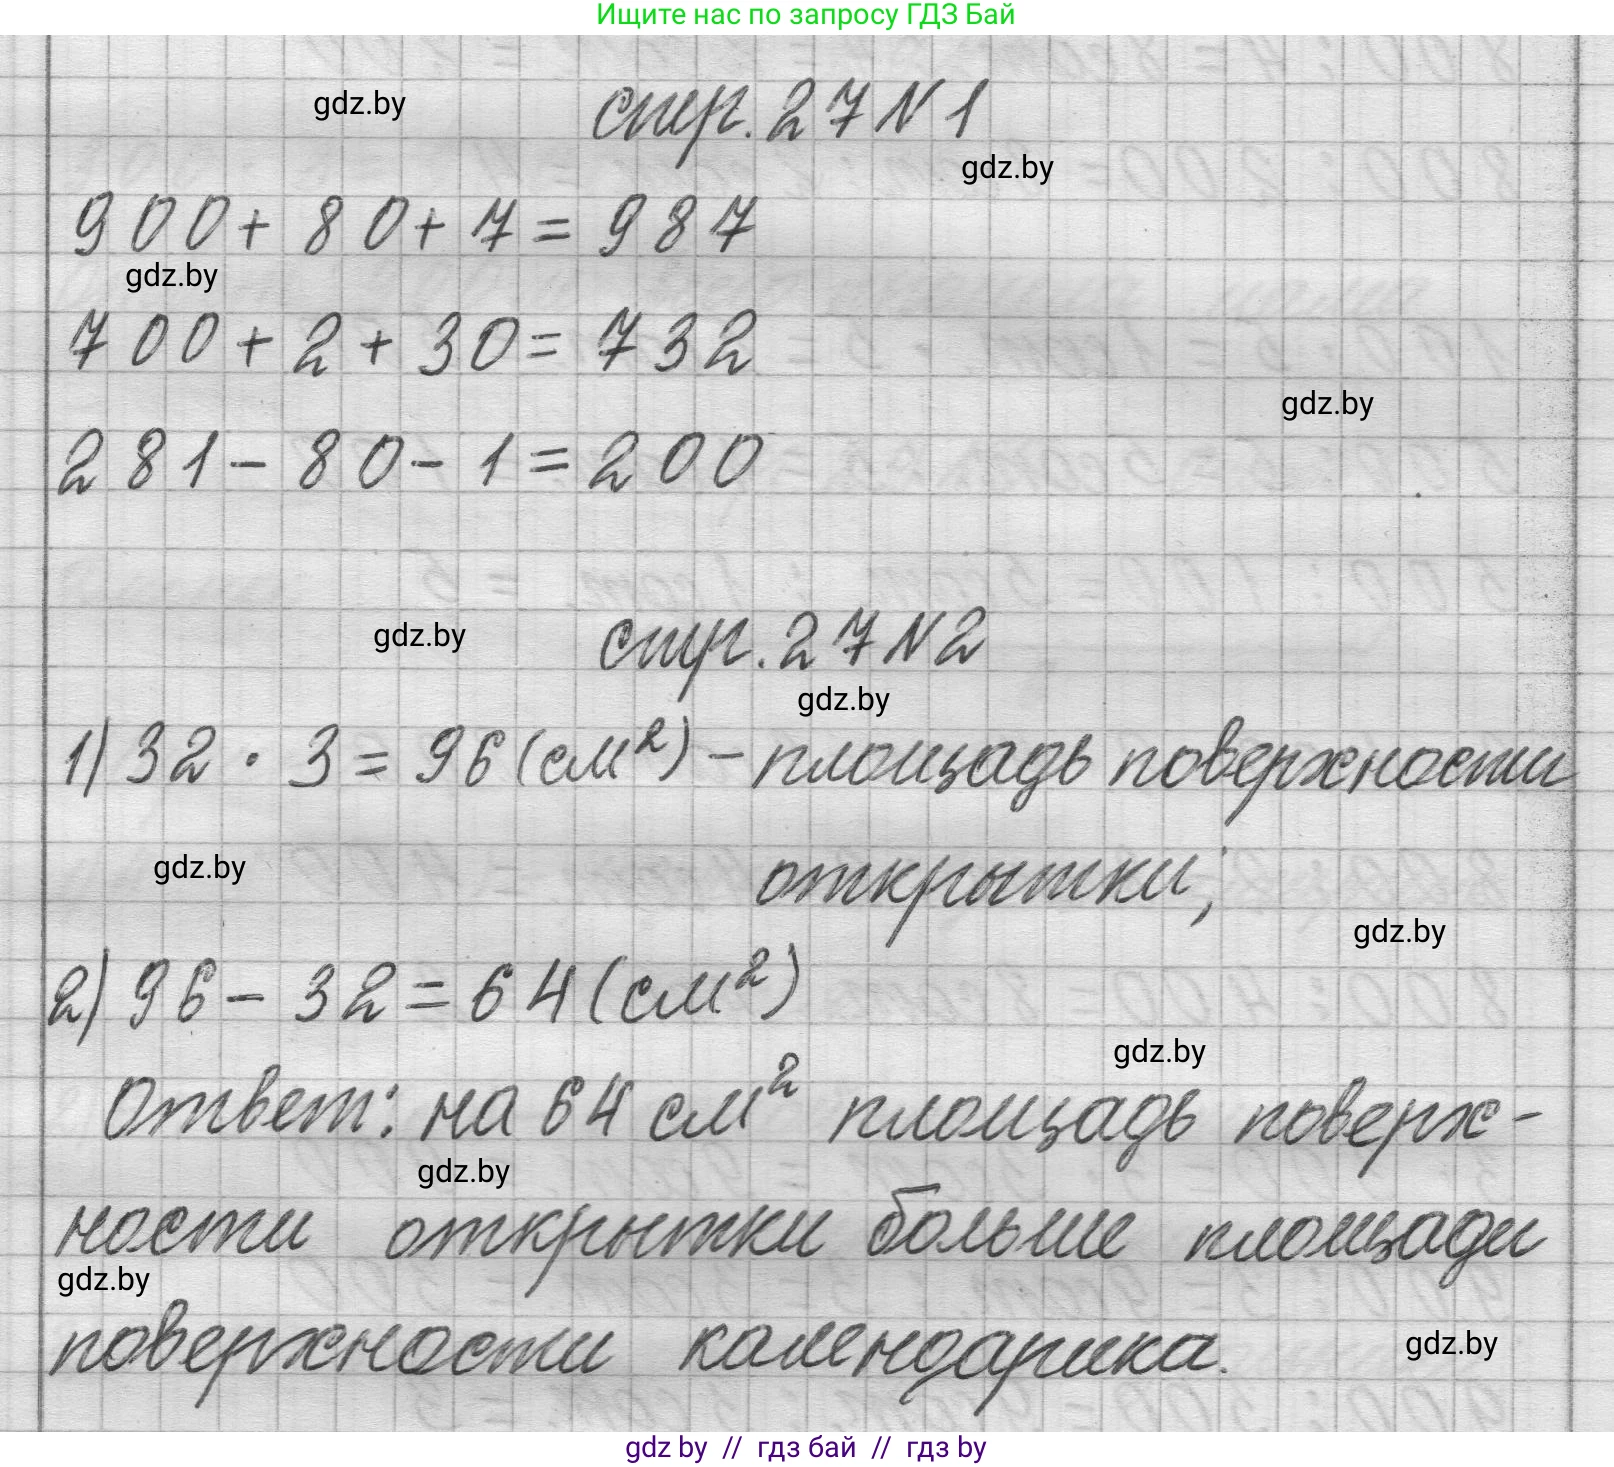 Ищите нас по запросу ГДЗ Бай
gdz.by
стр. 27 N 1
gdz.by
900 + 80 + 7 = 987
gdz.by
700 + 2 + 30 = 732
gdz.by
281 - 80 - 1 = 200
gdz.by
стр. 27 N 2
gdz.by
1) 32 · 3 = 96 (см²) - площадь поверхности
gdz.by
открытки;
gdz.by
2) 96 - 32 = 64 (см²)
gdz.by
Ответ: на 64 см² площадь поверх-
gdz.by
ности открытки больше площади
gdz.by
поверхности календарика.
gdz.by
gdz by // гдз бай // гдз by